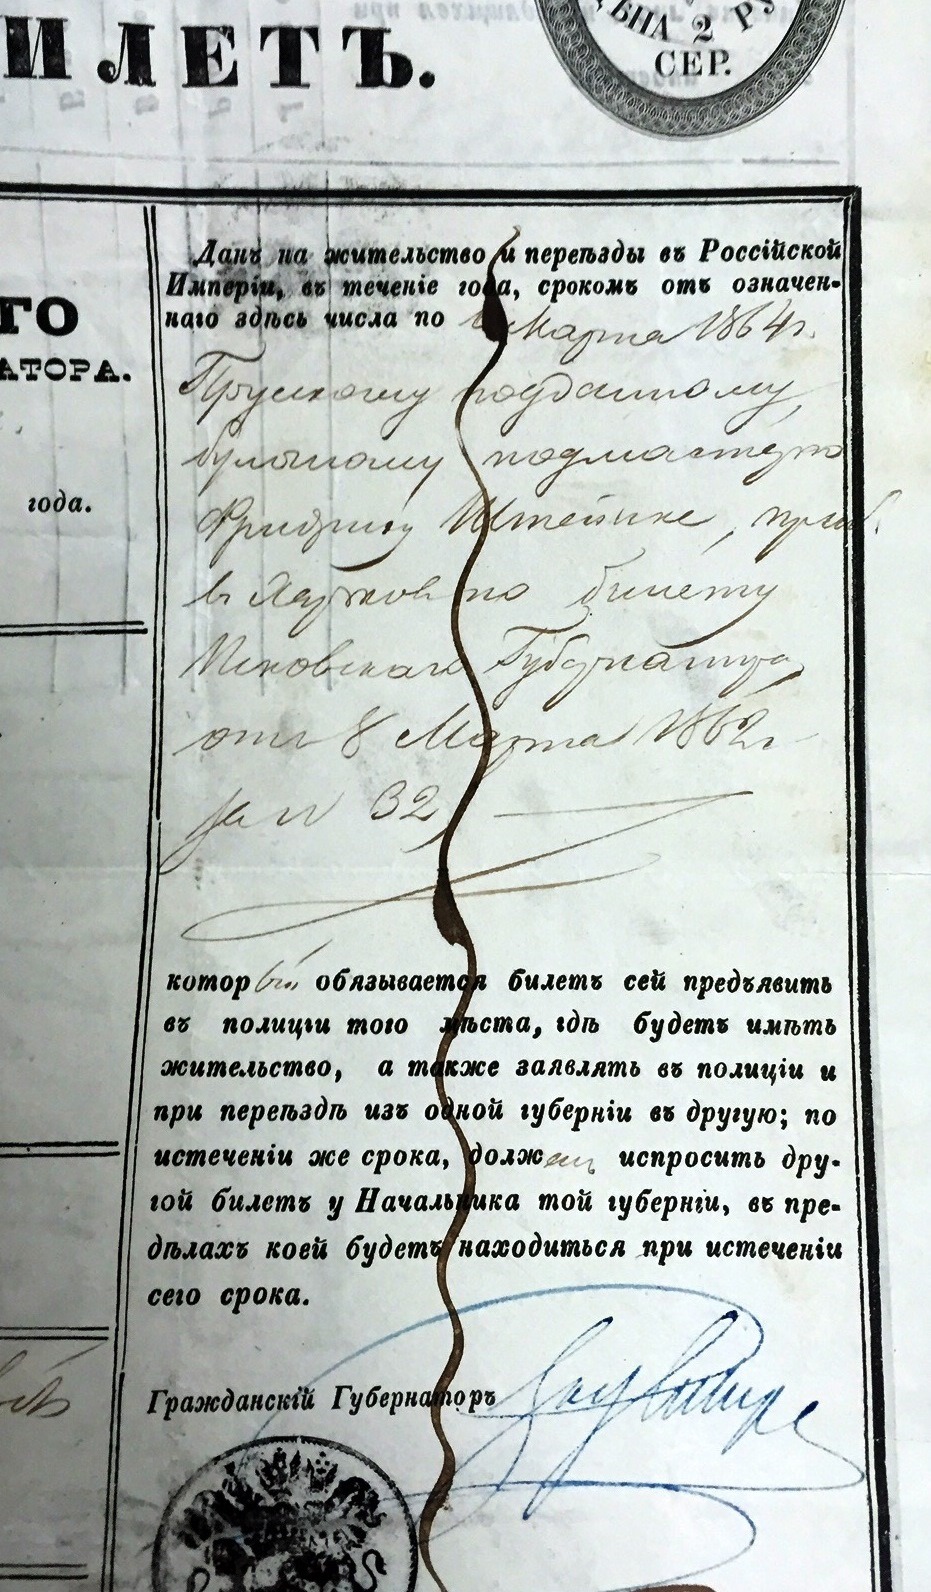 ИЛЕТЪ.
ЦѢНА 2 РУ
СЕР.
ГО
АТОРА.
года.
Данъ на жительство и переѣзды въ Россійской
Имперіи, въ теченіе года, срокомъ отъ означен-
наго здѣсь числа по Марта 1864 г.
Прускому подданному,
булочному подмастерью
Фридриху Штейнке, приб.
в Харьков по билету
Псковскаго Губернатора
от 8 Марта 1862 г.
за N 32
который обязывается билетъ сей предъявить
въ полиціи того мѣста, гдѣ будетъ имѣть
жительство, а также заявлять въ полиціи и
при переѣздѣ изъ одной губерніи въ другую; по
истеченіи же срока, должен испросить дру-
гой билетъ у Начальника той губерніи, въ пре-
дѣлахъ коей будетъ находиться при истеченіи
сего срока.
Гражданскій Губернаторъ